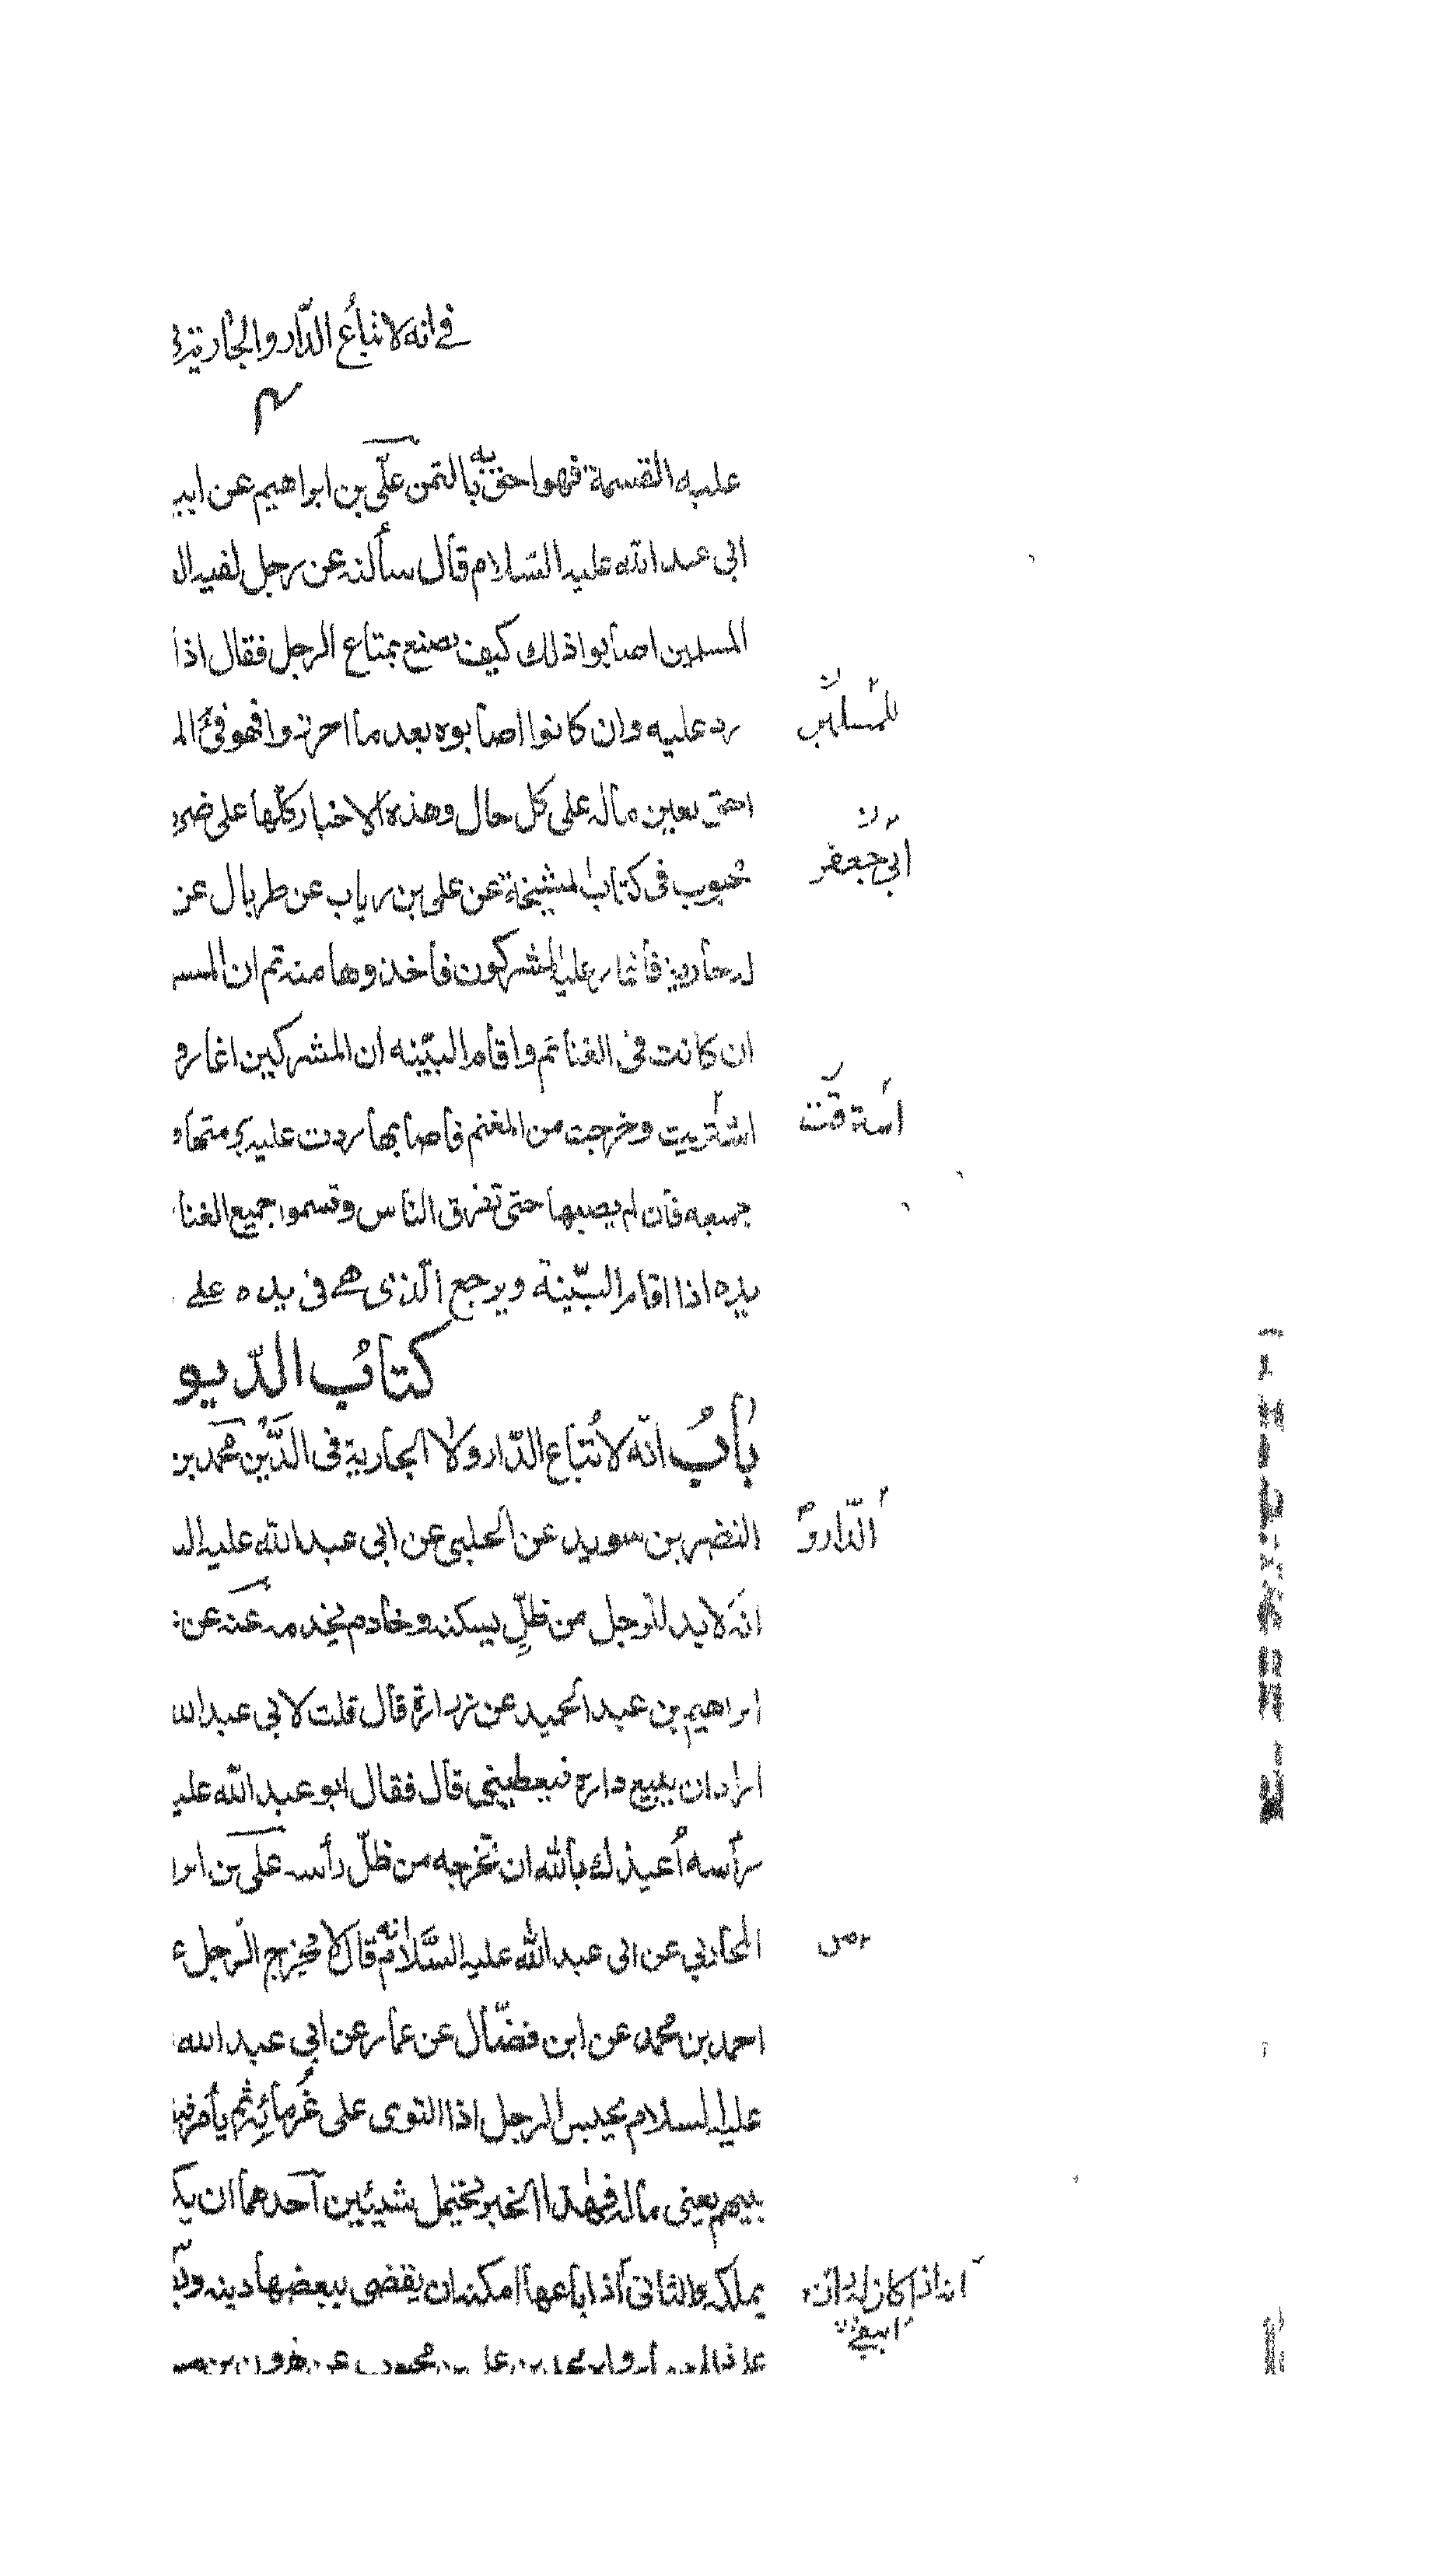 في انه لا تباع الدّار والجارية
عليه القسمة فهو احق به بالثمن علّي بن ابراهيم عن ابيه
ابى عبد الله عليه السّلام قال سألته عن رجل لقيه ال
المسلمين اصابوا ذلك كيف يصنع بمتاع الرجل فقال اذا
رد عليه وان كانوا اصابوه بعد ما احرزوا فهو فئ
للمسلمين
احق بعين ماله على كل حال وهذه الاخبار كلّها على
ابي جعفر
محبوب فى كتاب المشيخة عن على بن رياب عن طربال عن
له جارية فاغار عليه المشركون فاخذوها منه ثم ان المسـ
ان كانت فى الغنائم واقام البيّنه ان المشركين اغارو
اشتريت وخرجت من المغنم فاصابها ردت عليه برمتها و
جميعه فان لم يصيبها حتى تفرق الناس وقسموا جميع الغنا
يده اذا اقام البيّنة ويرجع الّذى هى فى يده على
كتابُ الدّيو
بابُ انّه لا تُباع الدّار ولا الجارية فى الدَّيْن محمد بن
الدّار و
النضر بن سويد عن الحلبى عن ابى عبد الله عليه
انّه لا بد للرّجل من ظلِّ يسكنه وخادم يخدمه عنه عن
ابراهيم بن عبد الحميد عن زرارة قال قلت لابي عبد الله
اراد ان يبيع داره فيعطينى قال فقال ابو عبد الله عليه
رأسه اُعيذك بالله ان تخرجه من ظلّ رأسه على بن ابرا
المحاربي عن ابى عبد الله عليه السَّلام انه قال لا يخرج الرّجل ع
احمد بن محمد عن ابن فضّال عن عمار عن ابي عبد الله
عليه السلام يحبس الرجل اذا التوى على غُرمائِه ثم يأمر
بينهم يعنى ماله فهذا الخبر يحتمل شيئين احدهما ان يكـ
يملكه والثانى اذا باعها امكنه ان يقضى ببعضها دينه
انه اذا كان له دار
محبوب عن هرون بن